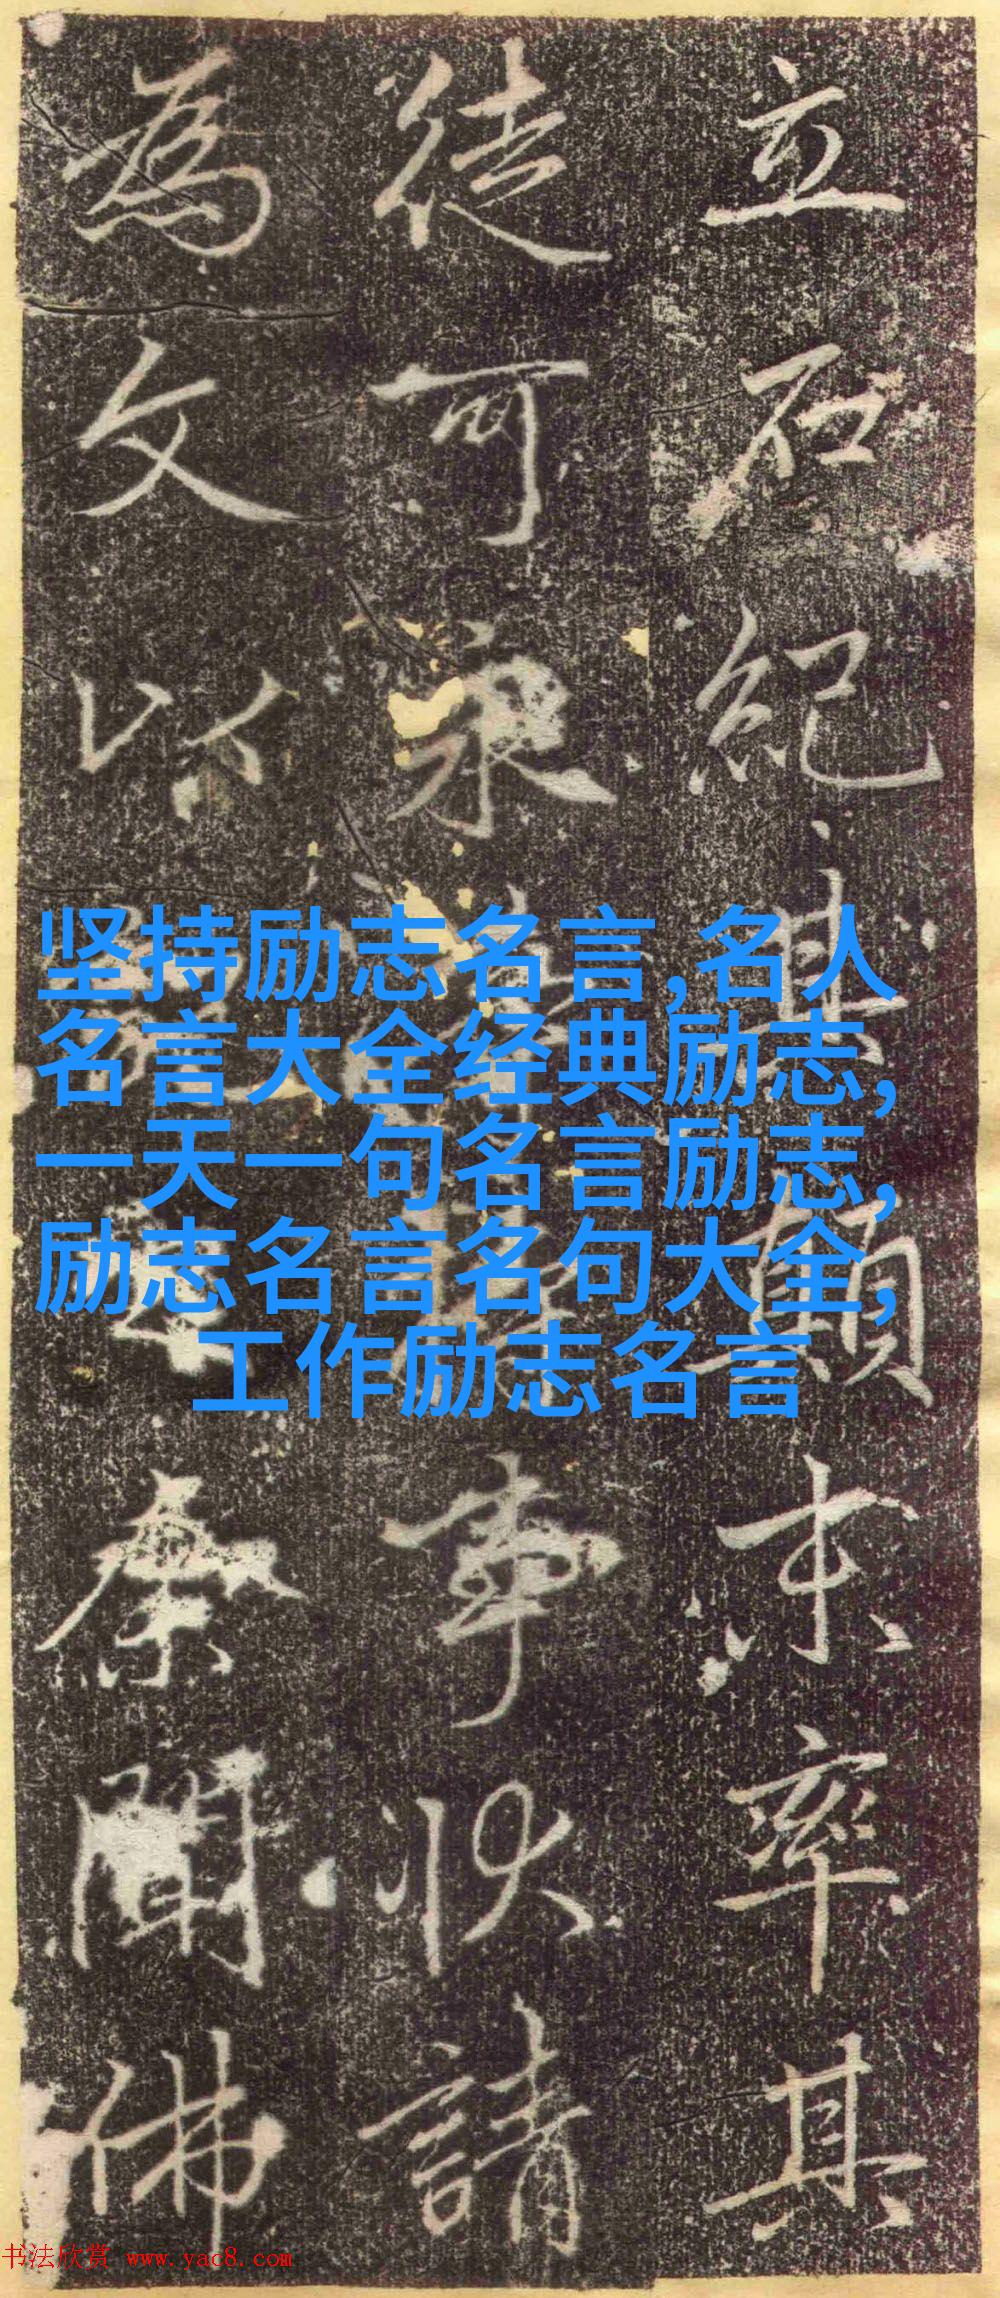 立石紀其顛末率其
徒可永事狀請
為文以聞佛
坚持励志名言,名人
名言大全经典励志,
一天一句名言励志,
励志名言名句大全,
工作励志名言
书法欣赏 www.yac8.com